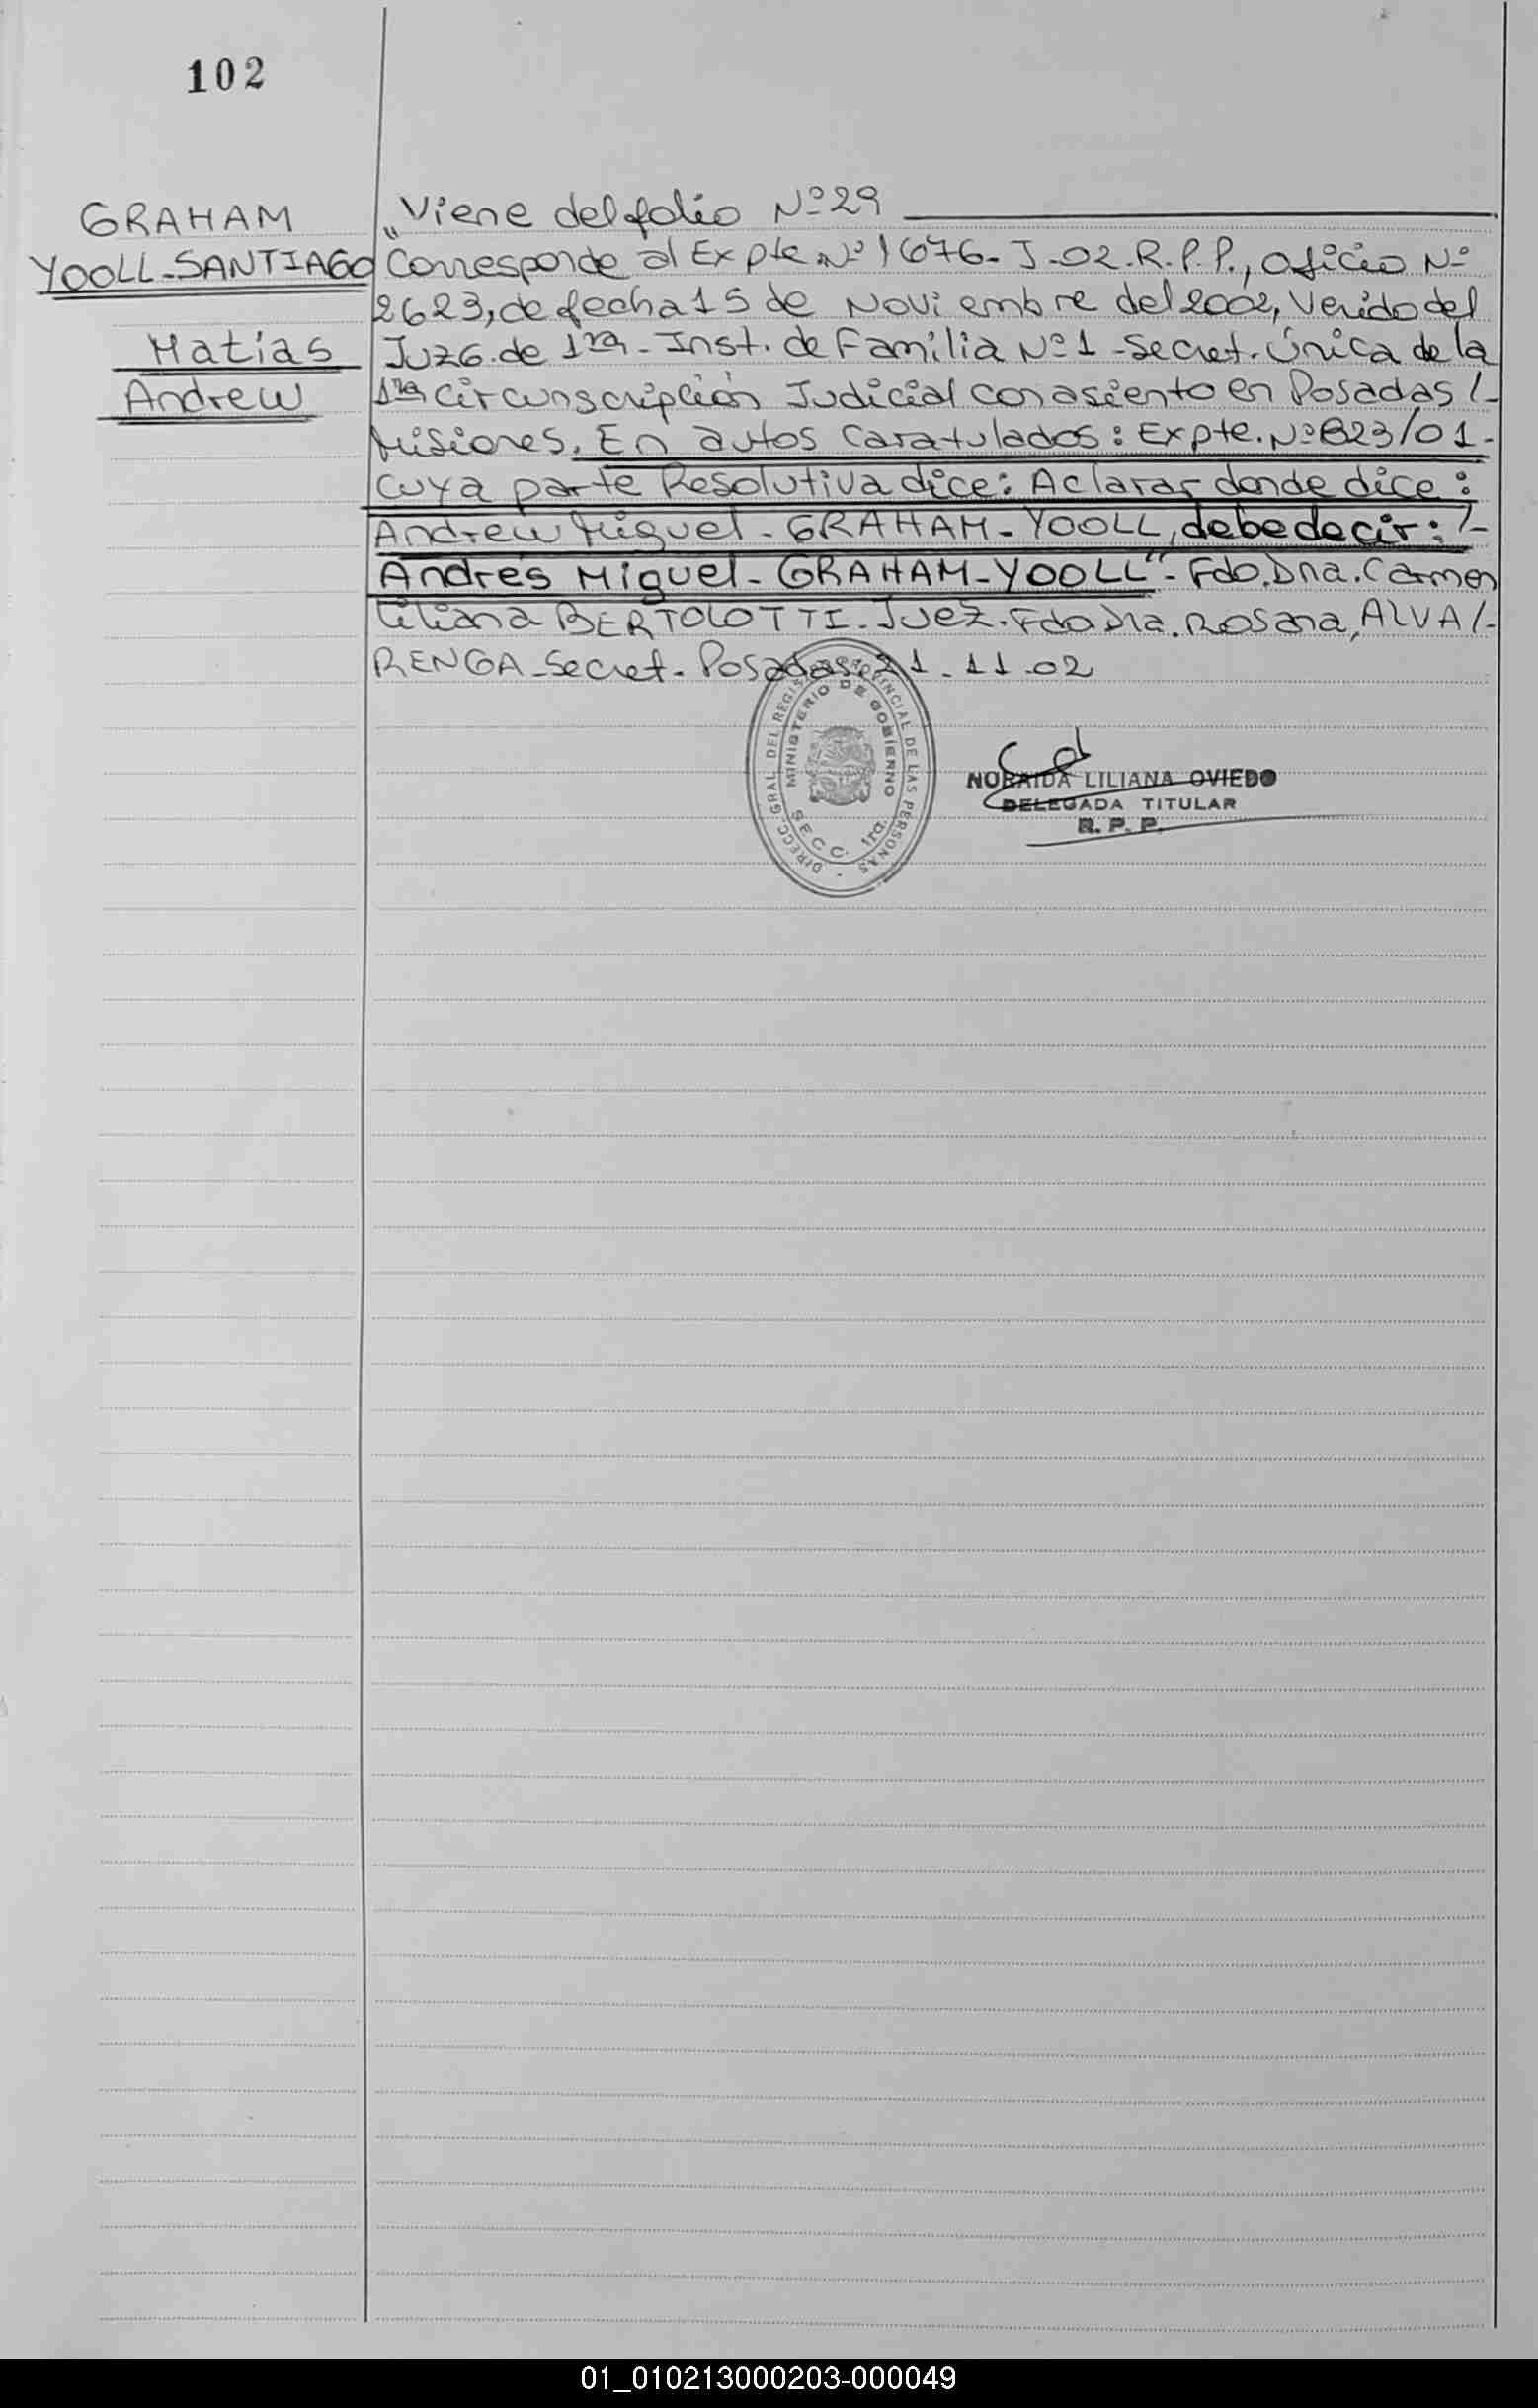 102
GRAHAM
YOOLL-SANTIAGO
Matías
Andrew
"Viene del folio Nº29
Corresponde al Expte Nº 1676-J-02.R.P.P., Oficio Nº
2623, de fecha 15 de Noviembre del 2002, Venido del
Juzg. de 1ra - Inst. de Familia Nº1 - Secret. Única de la
1ra Circunscripción Judicial con asiento en Posadas /-
Misiones. En autos Caratulados: Expte. Nº 823/01-
cuya parte Resolutiva dice: Aclarar donde dice:
Andrew Miguel - GRAHAM-YOOLL, debe decir: /-
Andrés Miguel - GRAHAM-YOOLL"- Fdo. Dra. Carmen
Liliana BERTOLOTTI - Juez. Fdo Dra. Rosana, ALVA/-
RENGA - Secret - Posadas, 21-11-02
DIRECC. GRAL DEL REGISTRO PROVINCIAL DE LAS PERSONAS
MINISTERIO DE GOBIERNO
SECC. 1ra.
NORAIDA LILIANA OVIEDO
DELEGADA TITULAR
R. P. P.
01_010213000203-000049